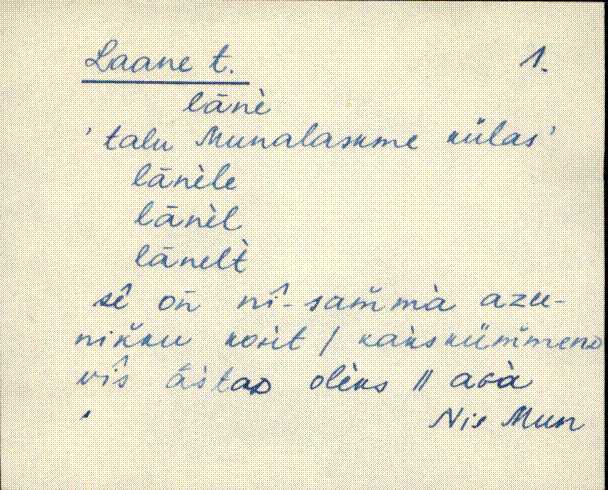 Laane t. 1.
lānè
'talu Munalaskme külas'
lānèle
lānèl
lānelt̀
sê on̄ nî-sam̆mà azu-
nik̆ku koh̀t / kak̀sküm̆meno
vîs āstao olèks || avà
Nis Mun